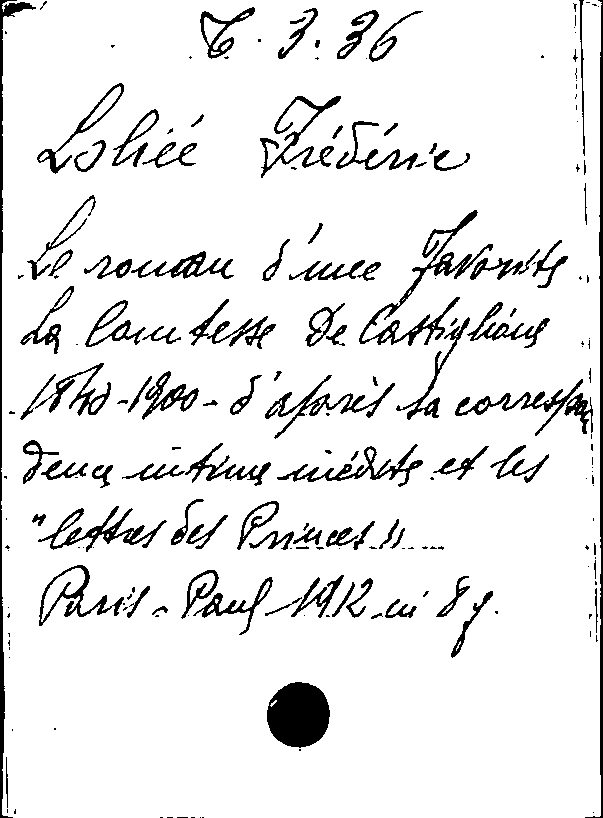 C. 3. 36
Loliée Frédéric
Le roman d'une Favorite
La Comtesse De Castiglione
1840-1900 - d'après sa correspon
dence intime inédite et les
"lettres des Princes"
Paris - Paul 1912 in 8 f.